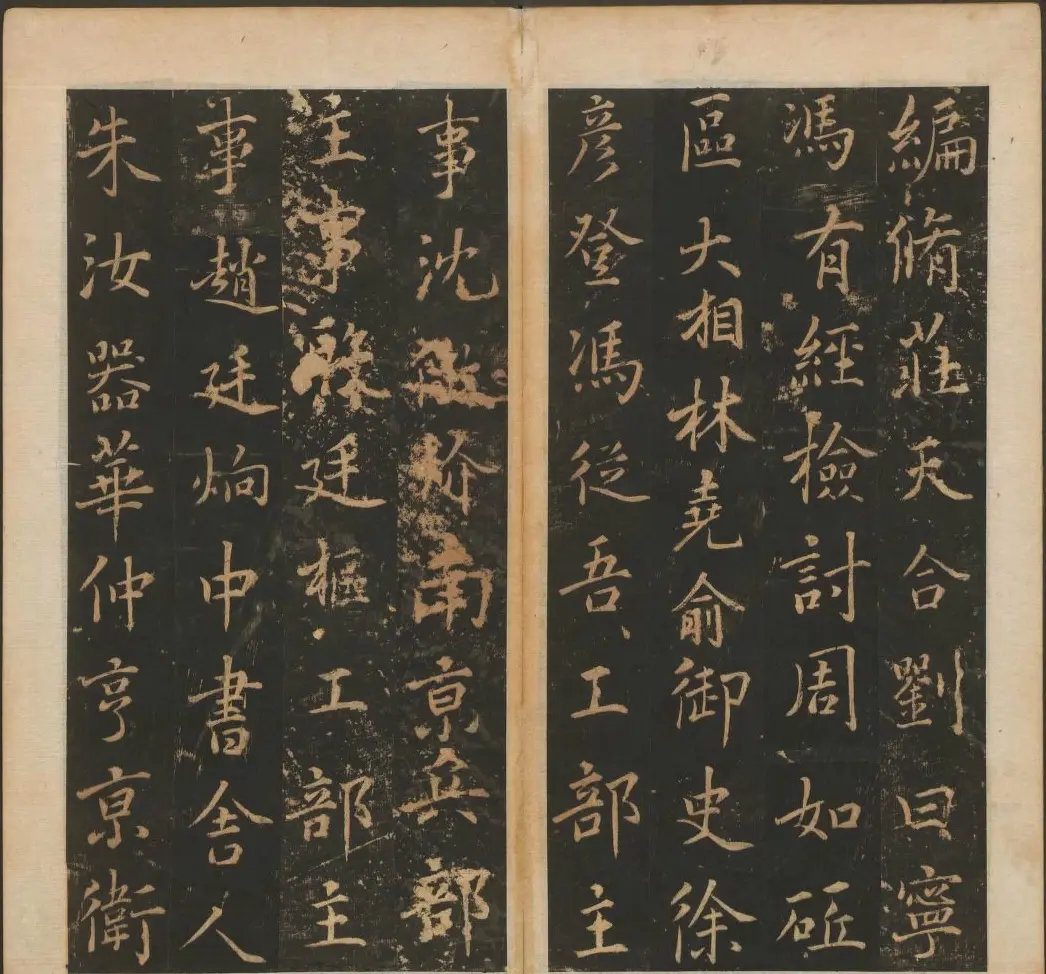 編脩莊天合劉曰寧
馮有經檢討周如砥
區大相林堯俞御史徐
彦登馮從吾工部主
事沈南京兵部
主事廷樞工部主
事趙廷炯中書舍人
朱汝器華仲亨京衛